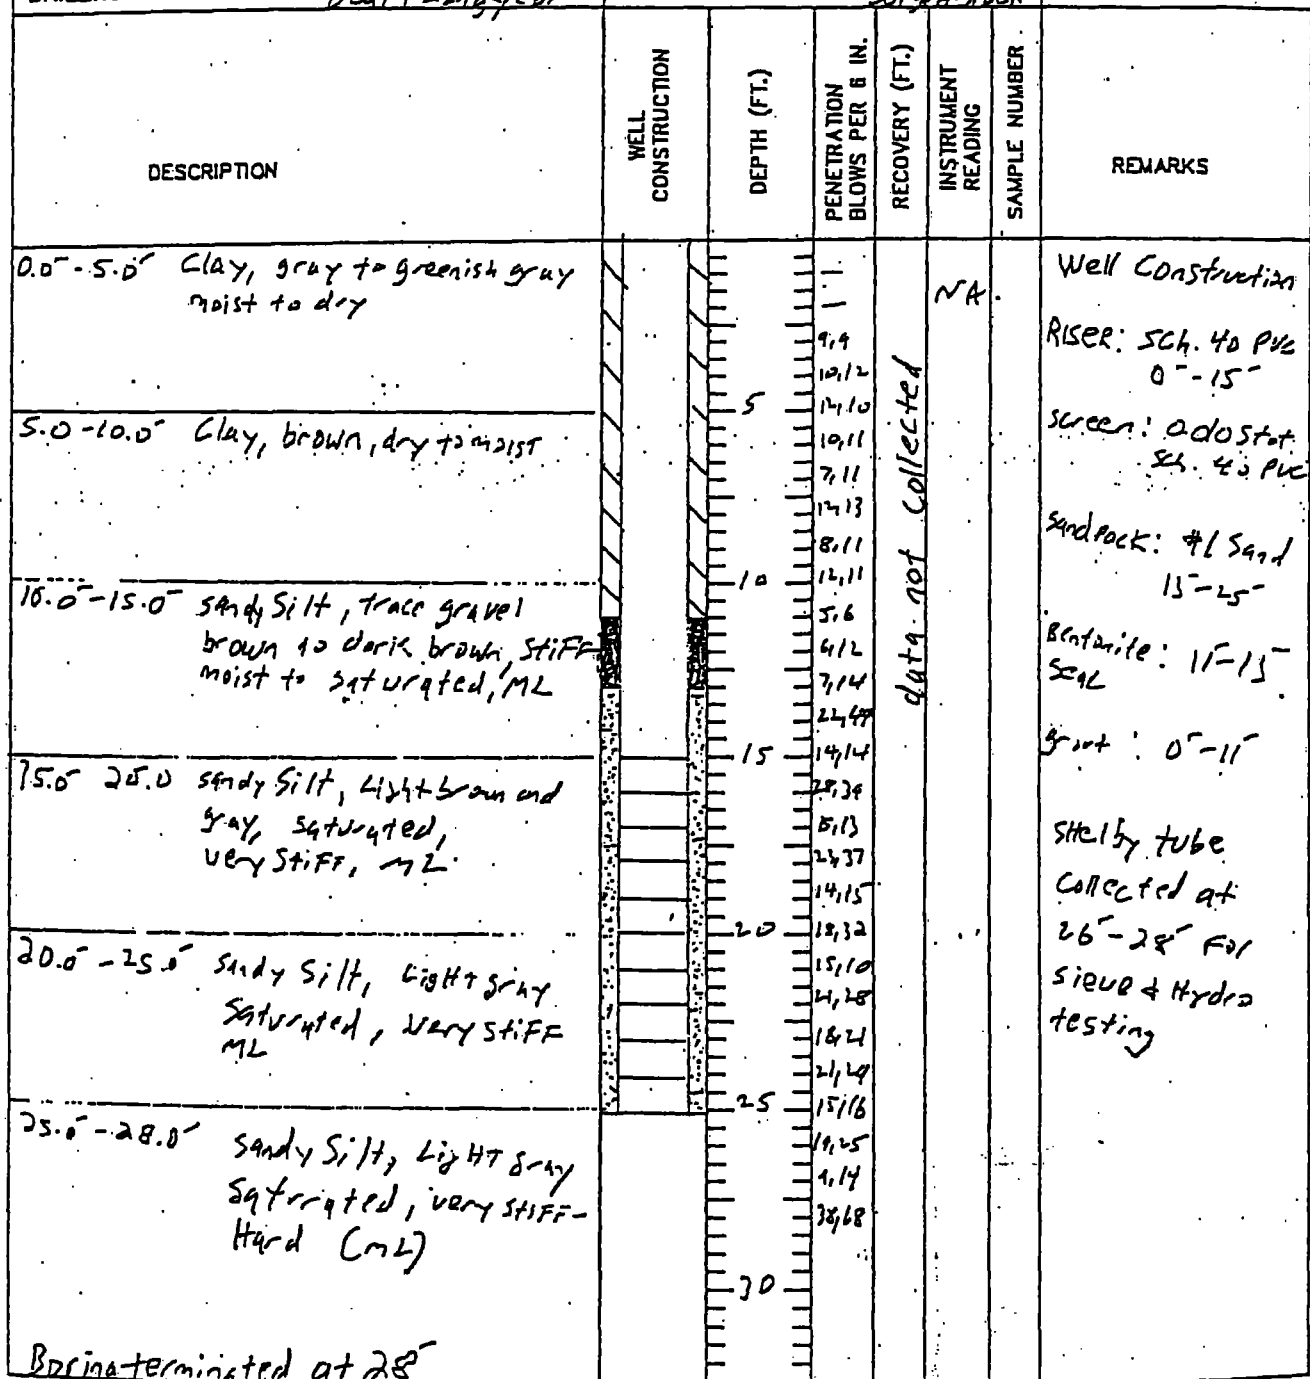 DESCRIPTION
WELL CONSTRUCTION
DEPTH (FT.)
PENETRATION BLOWS PER 6 IN.
RECOVERY (FT.)
INSTRUMENT READING
SAMPLE NUMBER
REMARKS
0.0' - 5.0' Clay, gray to greenish gray
moist to dry
5.0 - 10.0' Clay, brown, dry to moist
10.0' - 15.0' sandy Silt, trace gravel
brown to dark brown, stiff
moist to saturated, ML
15.0' 20.0 sandy Silt, Light brown and
gray, saturated,
very stiff, ML
20.0' - 25.0' sandy Silt, Light gray
saturated, very stiff
ML
25.0' - 28.0' sandy Silt, Light gray
saturated, very stiff-
Hard (ML)
Boring terminated at 28'
5
10
15
20
25
30
9,9
10,12
12,10
10,11
7,11
12,13
8,11
12,11
5,6
7,14
14,14
23,37
14,15
18,32
15,10
21,28
18,21
21,29
15,16
19,25
9,14
38,68
data not collected
NA
Well Construction
Riser: Sch. 40 PVC
0' - 15'
screen: 0.010 Slot
Sch. 40 PVC
Sandpack: #1 Sand
13' - 25'
Bentonite: 11' - 13'
Seal
grout: 0' - 11'
Shelby tube
collected at
26' - 28' For
sieve & Hydro
testing